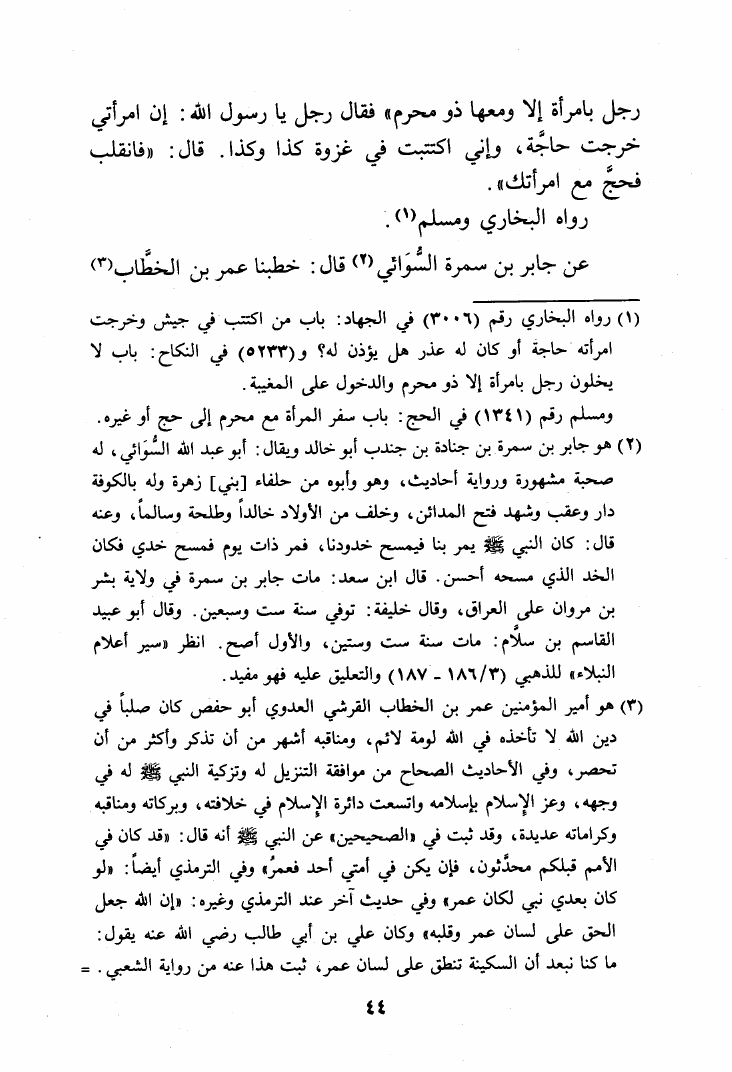 رجل بامرأة إلا ومعها ذو محرم» فقال رجل يا رسول الله: إن امرأتي
خرجت حاجَّة، وإني اكتتبت في غزوة كذا وكذا. قال: «فانقلب
فحجَّ مع امرأتك».
رواه البخاري ومسلم(١).
عن جابر بن سمرة السُّوَائي(٢) قال: خطبنا عمر بن الخطَّاب(٣)
(١) رواه البخاري رقم (٣٠٠٦) في الجهاد: باب من اكتتب في جيش وخرجت
امرأته حاجة أو كان له عذر هل يؤذن له؟ و(٥٢٣٣) في النكاح: باب لا
يخلون رجل بامرأة إلا ذو محرم والدخول على المغيبة.
ومسلم رقم (١٣٤١) في الحج: باب سفر المرأة مع محرم إلى حج أو غيره.
(٢) هو جابر بن سمرة بن جنادة بن جندب أبو خالد ويقال: أبو عبد الله السُّوَائي، له
صحبة مشهورة ورواية أحاديث، وهو وأبوه من حلفاء [بني] زهرة وله بالكوفة
دار وعقب وشهد فتح المدائن، وخلف من الأولاد خالداً وطلحة وسالماً، وعنه
قال: كان النبي ﷺ يمر بنا فيمسح خدودنا، فمر ذات يوم فمسح خدي فكان
الخد الذي مسحه أحسن. قال ابن سعد: مات جابر بن سمرة في ولاية بشر
بن مروان على العراق، وقال خليفة: توفي سنة ست وسبعين. وقال أبو عبيد
القاسم بن سلَّام: مات سنة ست وستين، والأول أصح. انظر «سير أعلام
النبلاء» للذهبي (١٨٦/٣ ـ ١٨٧) والتعليق عليه فهو مفيد.
(٣) هو أمير المؤمنين عمر بن الخطاب القرشي العدوي أبو حفص كان صلباً في
دين الله لا تأخذه في الله لومة لائم، ومناقبه أشهر من أن تذكر وأكثر من أن
تحصر، وفي الأحاديث الصحاح من موافقة التنزيل له وتزكية النبي ﷺ له في
وجهه، وعز الإسلام بإسلامه واتسعت دائرة الإسلام في خلافته، وبركاته ومناقبه
وكراماته عديدة، وقد ثبت في «الصحيحين» عن النبي ﷺ أنه قال: «قد كان في
الأمم قبلكم محدَّثون، فإن يكن في أمتي أحد فعمرُ» وفي الترمذي أيضاً: «لو
كان بعدي نبي لكان عمر» وفي حديث آخر عند الترمذي وغيره: «إن الله جعل
الحق على لسان عمر وقلبه» وكان علي بن أبي طالب رضي الله عنه يقول:
ما كنا نبعد أن السكينة تنطق على لسان عمر، ثبت هذا عنه من رواية الشعبي. =
٤٤